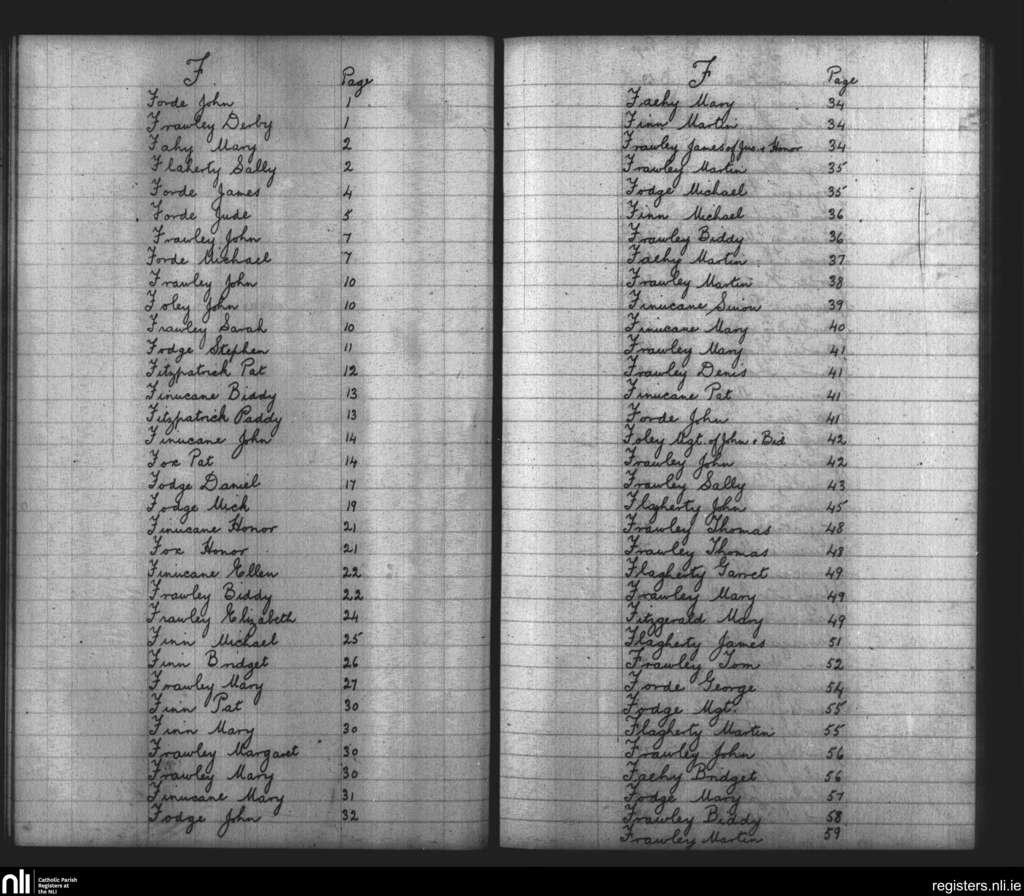 F
Page
Forde John 1
Frawley Derby 1
Fahy Mary 2
Flaherty Sally 2
Forde James 4
Forde Jude 5
Frawley John 7
Forde Michael 7
Frawley John 10
Foley John 10
Frawley Sarah 10
Fodge Stephen 11
Fitzpatrick Pat 12
Finucane Biddy 13
Fitzpatrick Paddy 13
Finucane John 14
Fox Pat 14
Fodge Daniel 17
Fodge Mick 19
Finucane Honor 21
Fox Honor 21
Finucane Ellen 22
Frawley Biddy 22
Frawley Elizabeth 24
Finn Michael 25
Finn Bridget 26
Frawley Mary 27
Finn Pat 30
Finn Mary 30
Frawley Margaret 30
Frawley Mary 30
Finucane Mary 31
Fodge John 32
F
Page
Faehy Mary 34
Finn Martin 34
Frawley James of Jas. & Honor 34
Frawley Martin 35
Fodge Michael 35
Finn Michael 36
Frawley Biddy 36
Faehy Martin 37
Frawley Martin 38
Finucane Simon 39
Finucane Mary 40
Frawley Mary 41
Frawley Denis 41
Finucane Pat 41
Forde John 41
Foley Mgt. of John & Bid 42
Frawley John 42
Frawley Sally 43
Flagherty John 45
Frawley Thomas 48
Frawley Thomas 48
Flagherty Garret 49
Frawley Mary 49
Fitzgerald Mary 49
Flagherty James 51
Frawley Tom 52
Forde George 54
Fodge Mgt. 55
Flagherty Martin 55
Frawley John 56
Faehy Bridget 56
Fodge Mary 57
Frawley Biddy 58
Frawley Martin 59
nli Catholic Parish
Registers at
the NLI
registers.nli.ie